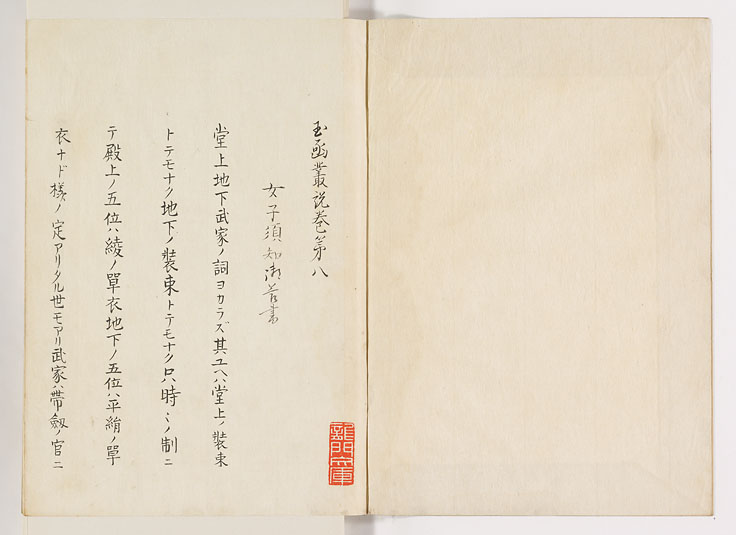 玉函叢説巻第八
女子須知御答書
堂上地下武家ノ詞ヨカラズ其ユヘハ堂上ノ装束
トテモナク地下ノ装束トテモナク只時ミノ制ニ
テ殿上ノ五位ハ綾ノ單衣地下ノ五位ハ平絹ノ單
衣ナド様ノ定アリタル世モアリ武家ハ帶劔ノ官ニ
龍門文庫